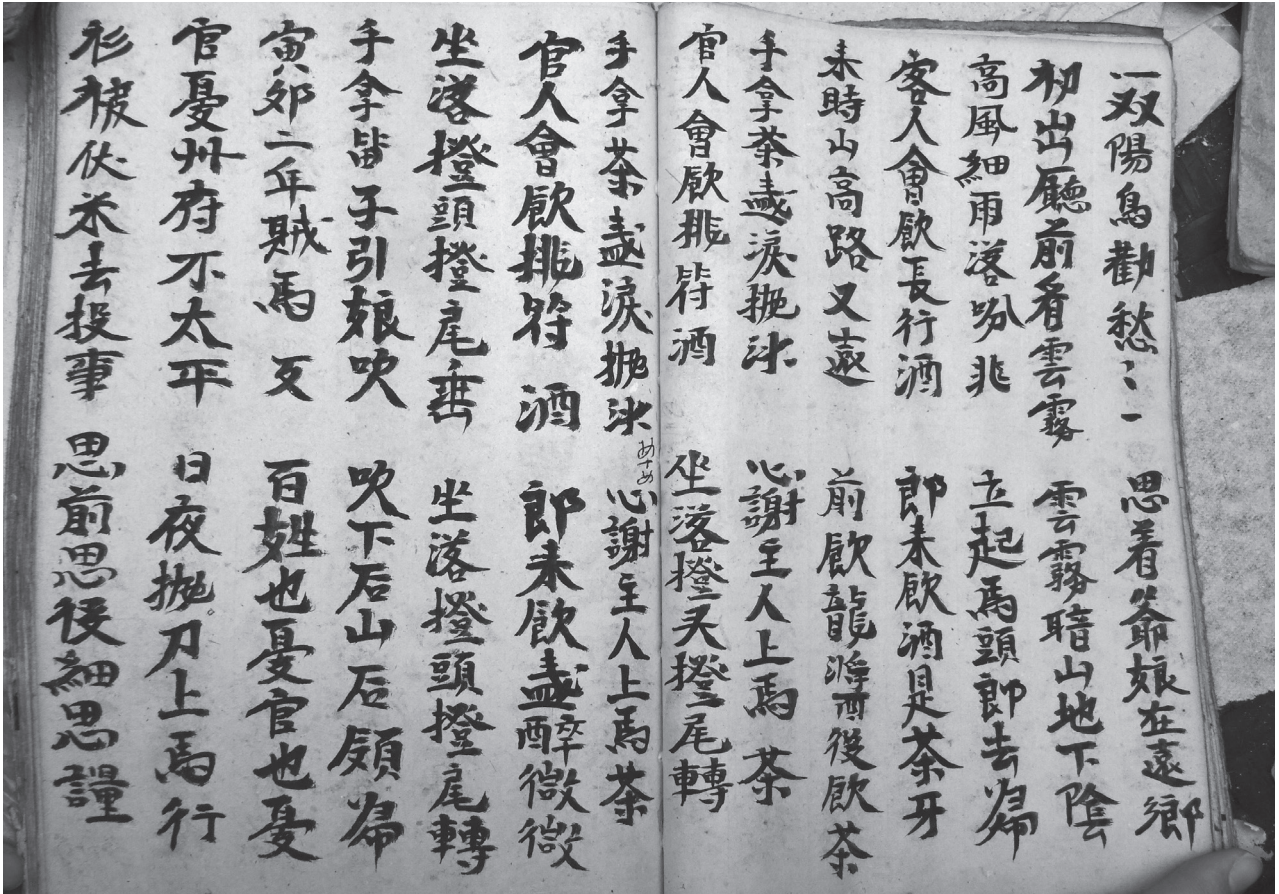 一双陽鳥勸愁〻一 思着爺娘在遠鄉
初出廳前看雲霧 雲霧暗山地下陰
高風細雨落 兆 立起馬頭郎去㱕
客人會飲長行酒 郎来飲酒是茶牙
来時山高路又遠 前飲龍 酒後飲茶
手拿茶盞淚抛 心謝主人上馬茶
官人會飲 符酒 坐落橙头橙尾轉
手拿茶盞淚抛 心謝主人上馬茶
官人會飲 符酒 郎来飲盞醉微微
坐落橙頭橙尾垂 坐落橙頭橙尾轉
手拿 子引娘吹 吹下石山石 㱕
寅卯二年賊馬反 百姓也憂官也憂
官憂州府不太平 日夜抛刀上馬行
衫被伏米去投事 思前思後細思量